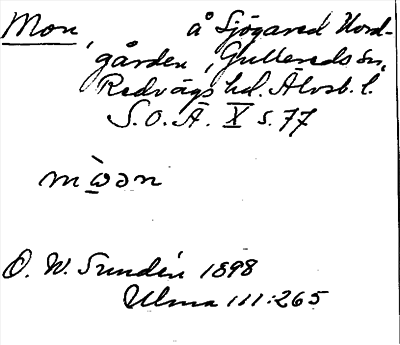 Mon, å Sjögared Nord-
gården, Gullereds sn,
Redvägs hd. Älvsb. l.
S.O.Ä. X s. 77
mὼən
O. W. Sundén 1898
Ulma 111:265